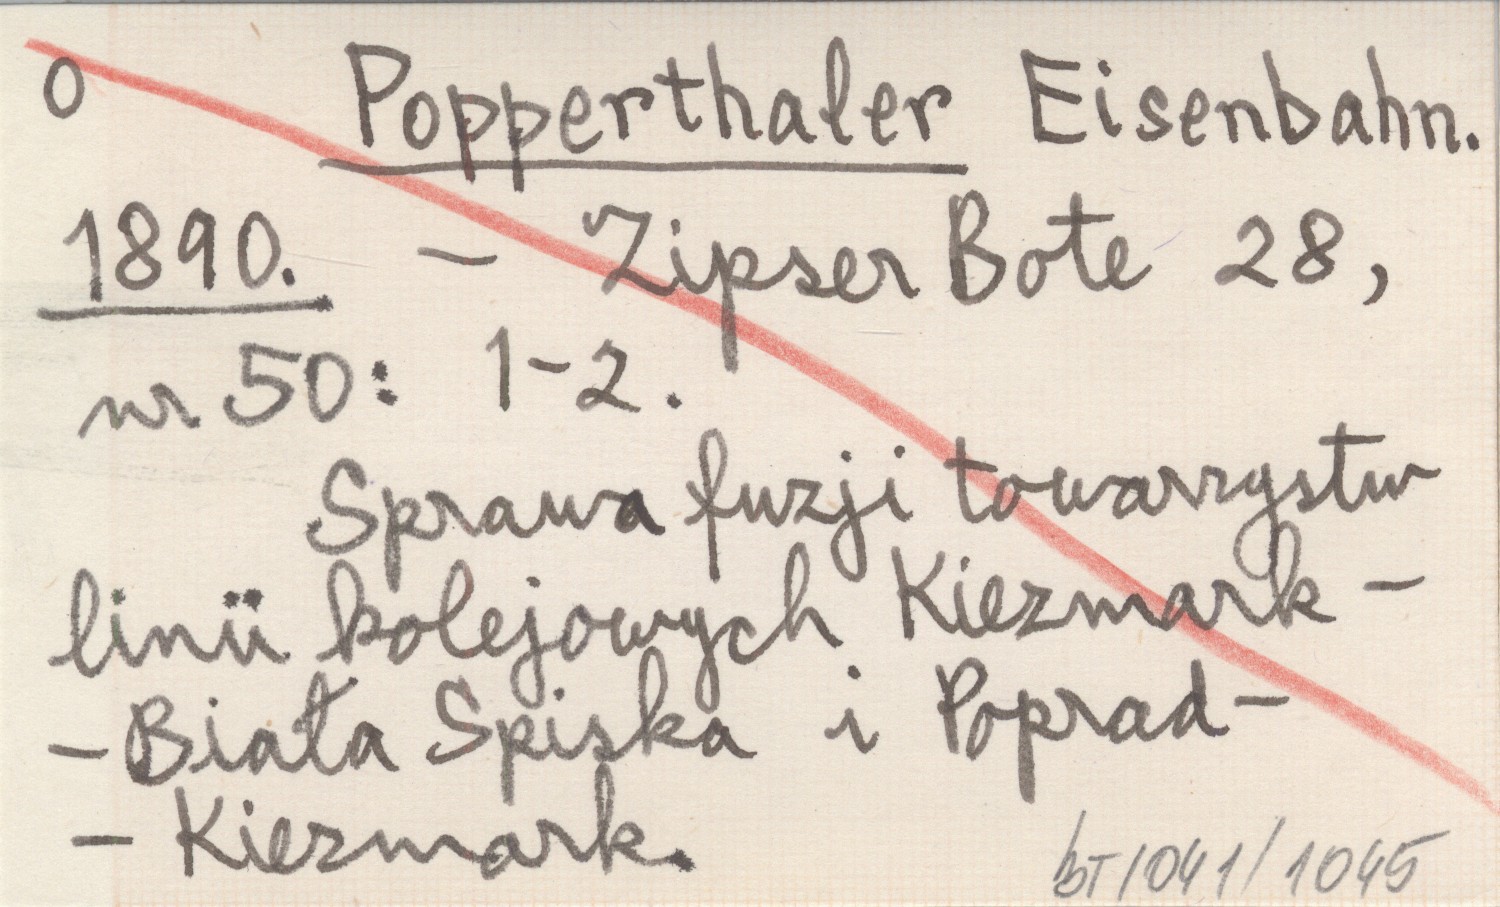 0 Popperthaler Eisenbahn.
1890. - Zipser Bote 28,
nr 50: 1-2.
Sprawa fuzji towarzystw
linii kolejowych Kiezmark -
- Biała Spiska i Poprad -
- Kiezmark.
bT/041/1045